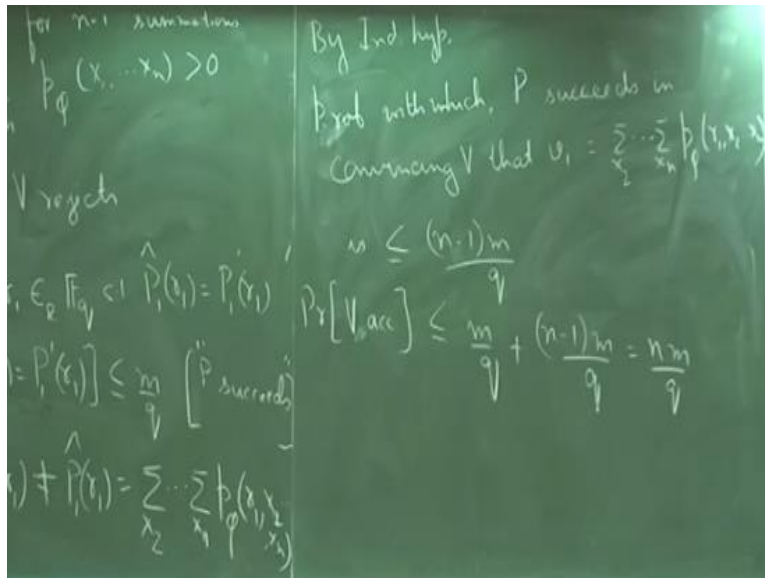 for n-1 summations
p_φ (x, ... x_n) > 0
V rejects
r_1 ∈_R 𝔽_q s.t P̂_1(r_1) = P'_1(r_1)
) = P'_1(r_1)] ≤ m/q ["P succeeds"
_1) ≠ P̂_1(r_1) = Σ_{x_2} ... Σ_{x_n} p_φ(r_1, x_2 x_n)
By Ind. hyp.
Prob with which, P succeeds in
Convincing V that v_1 = Σ_{x_2} ... Σ_{x_n} p_φ(r_1, x_2
is ≤ (n-1)m/q
Pr[V acc] ≤ m/q + (n-1)m/q = nm/q